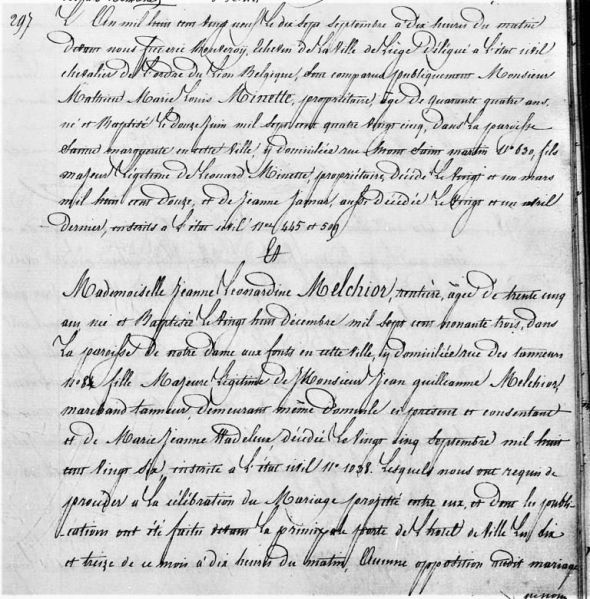 297 L'An mil huit cent vingt neuf Le dix sept septembre à dix heures du matin
devant nous Echevin de La Ville de Liège délégué a L'état civil
chevalier de L'ordre du Lion Belgique, sont comparus publiquement Monsieur
Mathieu Marie Louis Minette, propriétaire, âgé de quarante quatre ans,
né et Baptisé Le douze Juin mil sept cent quatre vingt cinq, Dans La paroisse
Sainte marguerite en cette Ville, y domiciliée rue Mont Saint martin N° 630, fils
majeur Légitime de Léonard Minette propriétaire, décédé Le vingt et un mars
mil huit cent douze, et de Jeanne Jamar, aussi décédée Le vingt et un avril
Dernier, inscrits a L'état civil Nos 445 et 509
Et
Mademoiselle Jeanne Leonardine Melchior, rentière, âgée de trente cinq
ans, née et Baptisée Le vingt huit décembre mil sept cent nonante trois, dans
La paroisse De notre Dame aux fonts en cette Ville, y domiciliée rue des tanneurs
fille Majeure Légitime de Monsieur Jean guilleaume Melchior,
marchand tanneur, demeurant même demeure ici présent et consentant
et de Marie Jeanne décédée Le vingt cinq septembre mil huit
cent vingt six, inscrite a L'état civil N° 1038. Lesquels nous ont requis de
procéder a La célébration du Mariage projetté entre eux, et dont les publi-
cations ont été faites devant La principale porte de L'hotel de Ville Les dix
et treize de ce mois a dix heures du matin, Aucune opposition audit mariage